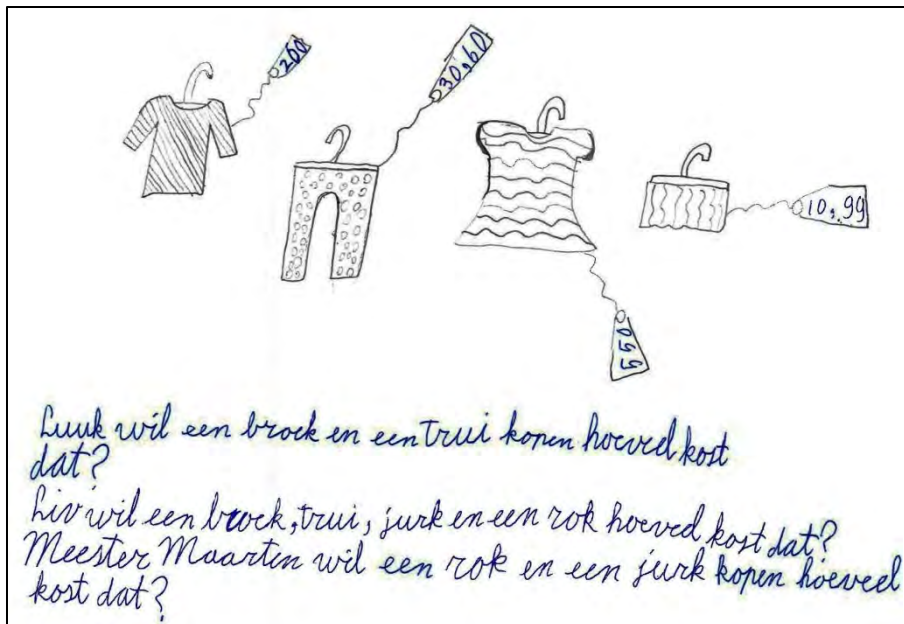 200
30,60
10,99
550
Luuk wil een broek en een trui kopen hoeveel kost
dat?
Liv wil een broek, trui, jurk en een rok hoeveel kost dat?
Meester Maarten wil een rok en een jurk kopen hoeveel
kost dat?